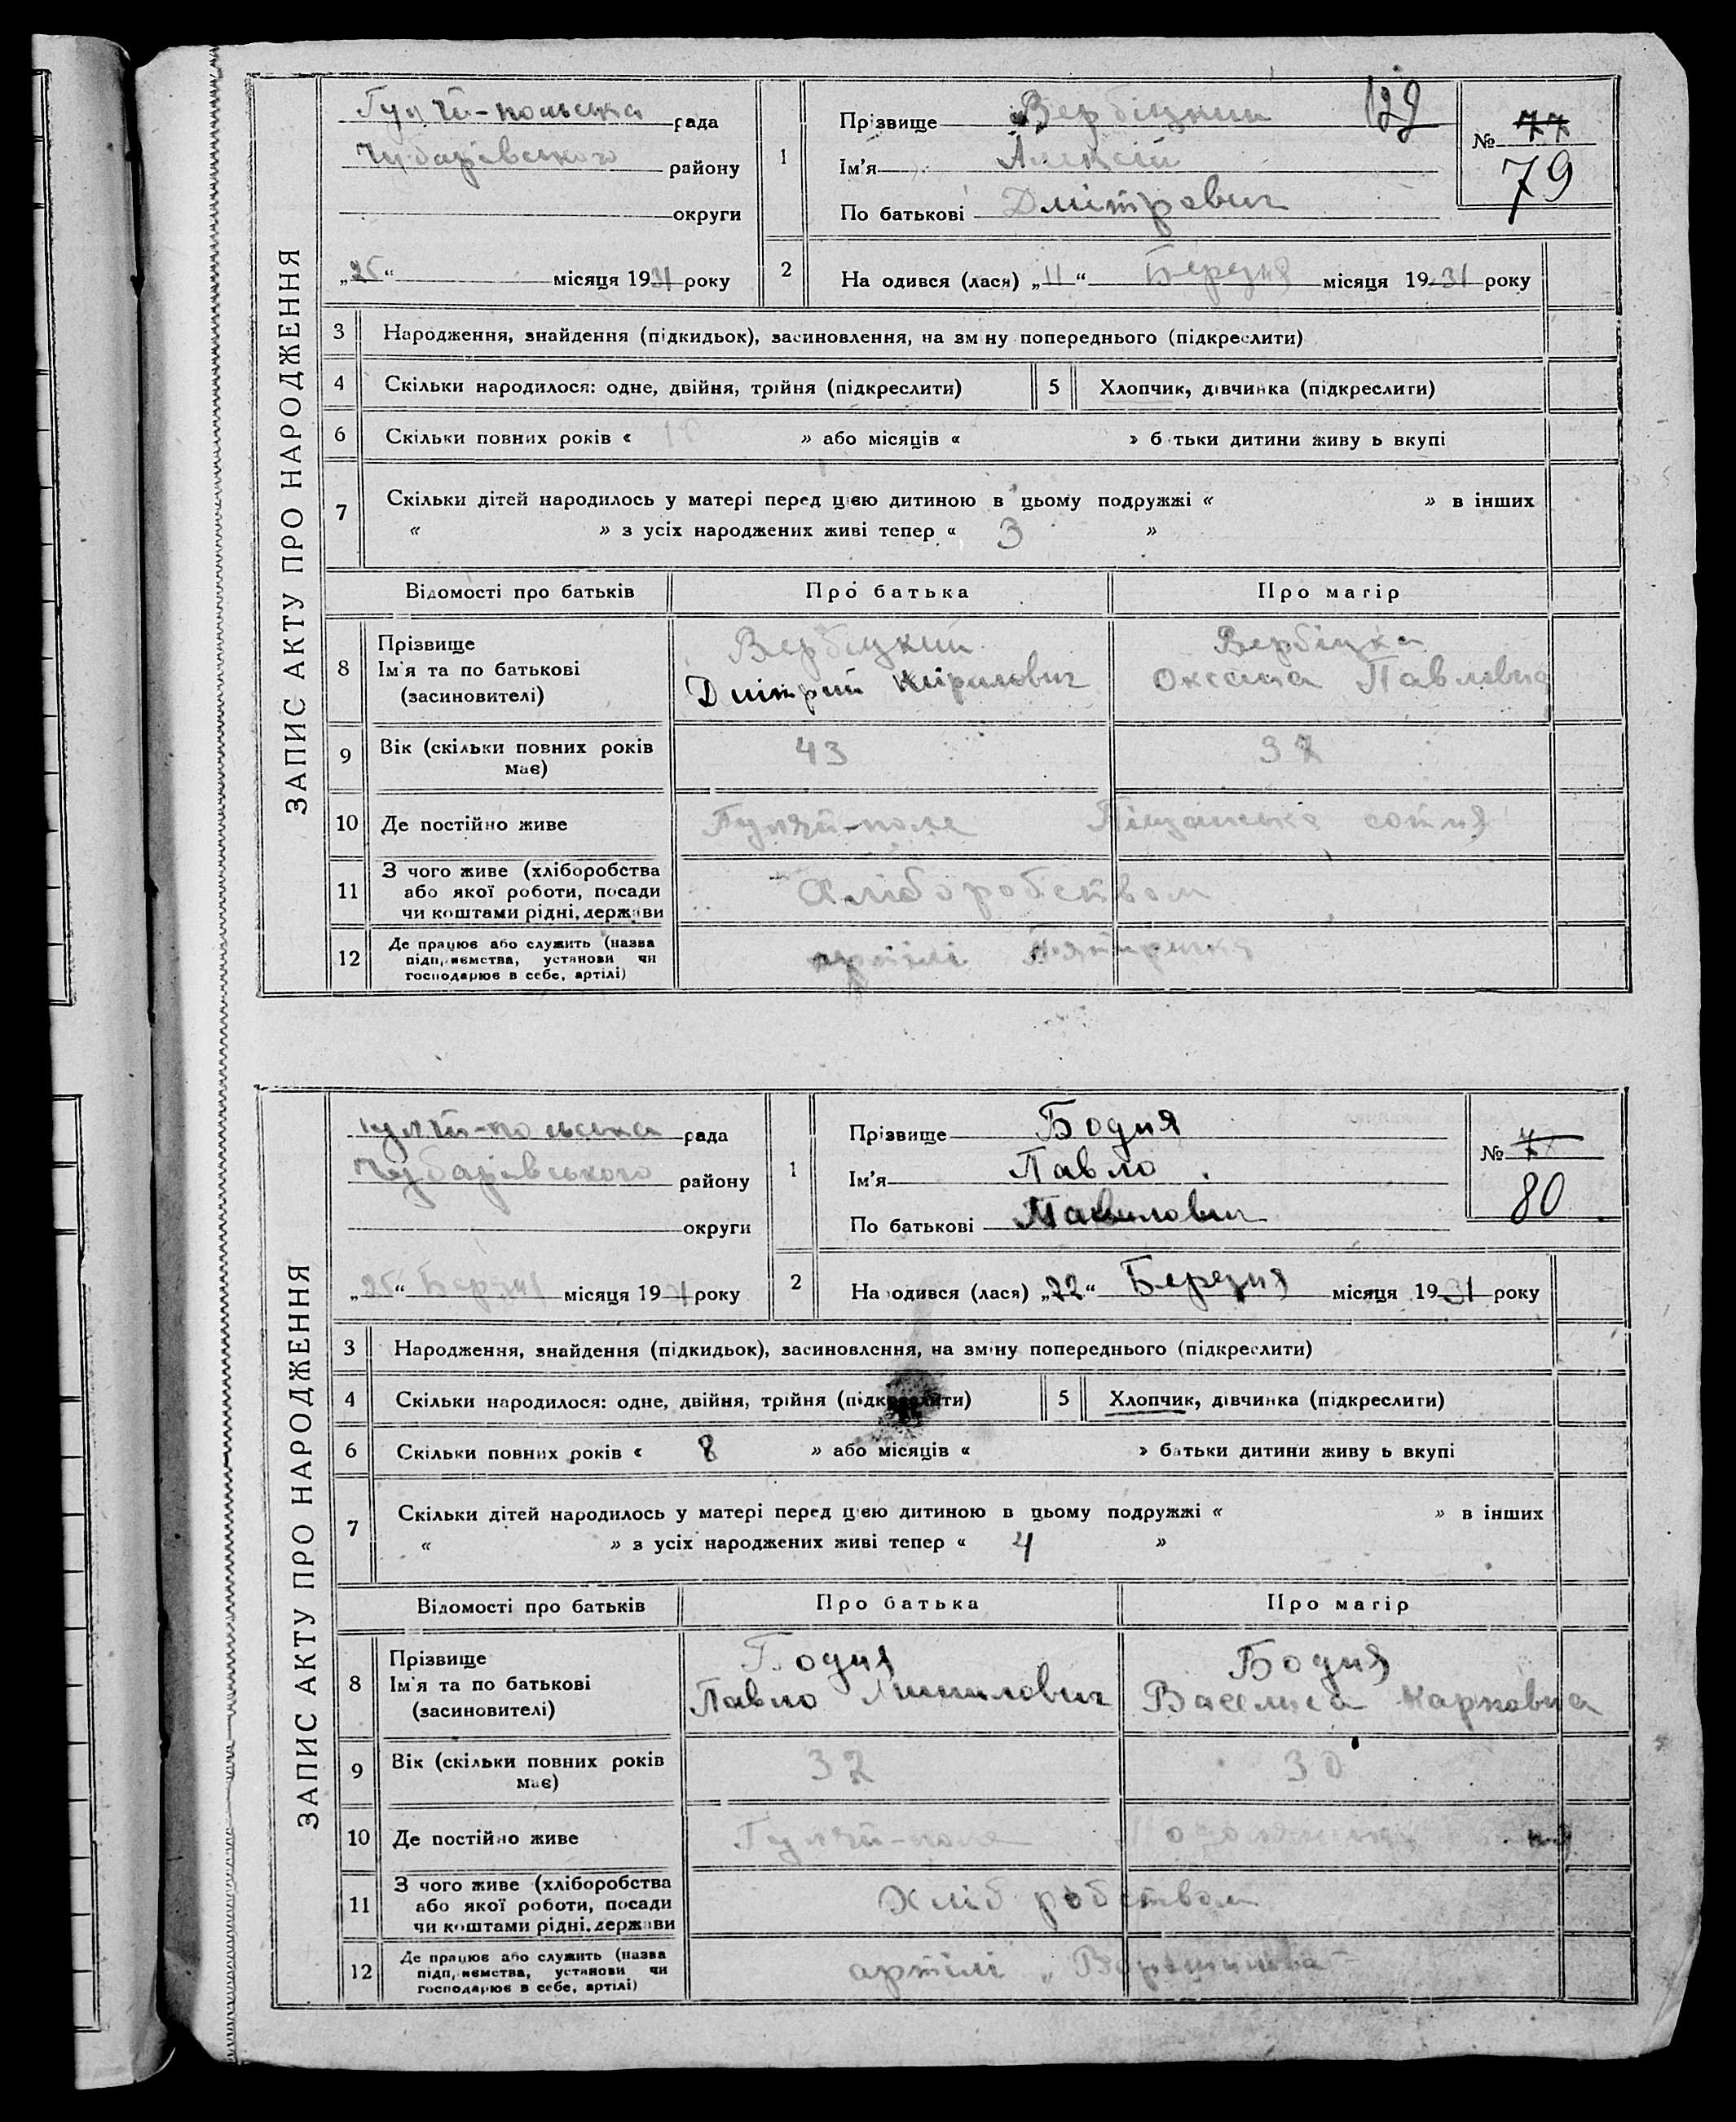 ЗАПИС АКТУ ПРО НАРОДЖЕННЯ
Гуляй-польська рада
Чубарівського району
округи
„25“ місяця 1931 року
1
Прізвище Вербіцкий
Ім'я Алексій
По батькові Дмітрович
129
№ 77
79
2
На одився (лася) „11“ Березня місяця 1931 року
3 Народження, знайдення (підкидьок), засиновлення, на зміну попереднього (підкреслити)
4 Скільки народилося: одне, двійня, трійня (підкреслити) 5 Хлопчик, дівчинка (підкреслити)
6 Скільки повних років « 10 » або місяців « » батьки дитини живу ь вкупі
7 Скільки дітей народилось у матері перед цією дитиною в цьому подружжі « » в інших
« » з усіх народжених живі тепер « 3 »
Відомості про батьків Про батька Про матір
8 Прізвище
Ім'я та по батькові
(засиновителі)
Вербіцкий
Дмітрий Кирилович
Вербіцка
Оксана Павловна
9 Вік (скільки повних років має) 43 37
10 Де постійно живе Гуляй-поле Піщанська сотня
11 З чого живе (хліборобства
або якої роботи, посади
чи коштами рідні, держави
Хліборобством
12 Де працює або служить (назва
підприємства, установи чи
господарює в себе, артілі)
артілі
ЗАПИС АКТУ ПРО НАРОДЖЕННЯ
Гуляй-польська рада
Чубарівського району
округи
„25“ Березня місяця 1931 року
1
Прізвище Бодня
Ім'я Павло
По батькові Павлович
№ 78
80
2
На одився (лася) „22“ Березня місяця 1931 року
3 Народження, знайдення (підкидьок), засиновлення, на зміну попереднього (підкреслити)
4 Скільки народилося: одне, двійня, трійня (підкреслити) 5 Хлопчик, дівчинка (підкреслити)
6 Скільки повних років « 8 » або місяців « » батьки дитини живу ь вкупі
7 Скільки дітей народилось у матері перед цією дитиною в цьому подружжі « » в інших
« » з усіх народжених живі тепер « 4 »
Відомості про батьків Про батька Про матір
8 Прізвище
Ім'я та по батькові
(засиновителі)
Бодня
Павло
Бодня
Василиса Карповна
9 Вік (скільки повних років має) 32 30
10 Де постійно живе Гуляй-поле
11 З чого живе (хліборобства
або якої роботи, посади
чи коштами рідні, держави
Хліборобством
12 Де працює або служить (назва
підприємства, установи чи
господарює в себе, артілі)
артілі „Ворошилова“